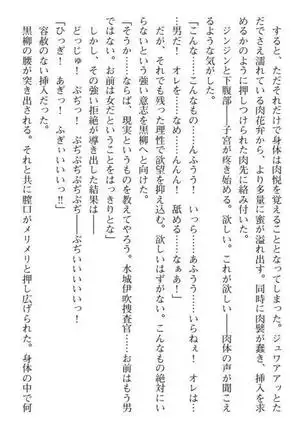 すると、ただそれだけで身体は肉悦を覚えてしまった。ジュワアアッとた
だでさえ濡れている肉花弁から、より多量に蜜が溢れ出す。同時に肉襞が蠢き、挿入を求
めるかのように押しつけられた肉先に絡み付いた。
ジンジンと下腹部――子宮が疼き始める。欲しい。これが欲しい――肉体の声が聞こえ
るような気がした。
「こんな……こんなもの……んふうう！　いっら……あふうう……いらねぇ！　オレは…
…男だ！　オレを……なめ……んんん！　舐める……なぁあ！」
だが、それでも残った理性で欲望を抑え込む。欲しいはずがない。こんなもの欲しくな
らないという強い意志を黒柳へと向けた。
「そうか……ならば、現実というものを教えてやろう。水城伊吹捜査官……お前はもう男
ではない。お前は女だということをはっきりとな」
しかし、その強い拒絶が導き出した結果は――
どっじゅ！　ぶぢっ！　ぶぢぶぢぶぢ――ぶぢいいいいっ！
「ひっぎ！　あぎっ！　ふぎぃいいいっ！！」
容赦のない挿入だった。
黒柳の腰が突き出される。それと共に膣口がメリメリと押し広げられた。身体の中で何